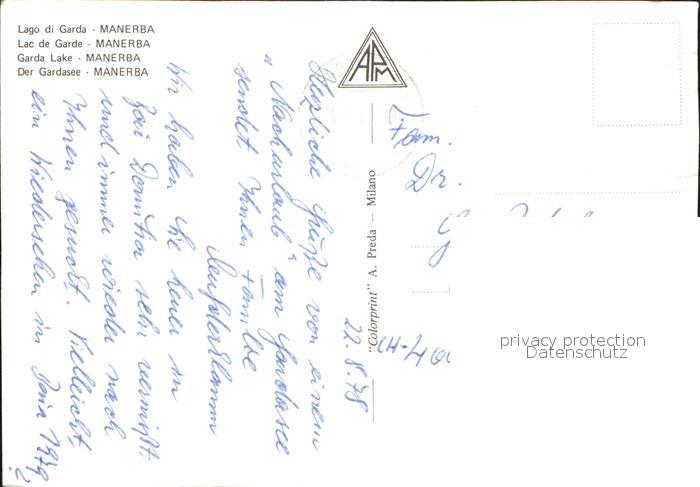 Lago di Garda - MANERBA
Lac de Garde - MANERBA
Garda Lake - MANERBA
Der Gardasee - MANERBA
APM
"Colorprint" A. Preda — Milano
22.8.78
Herzliche Grüße von einem
"Nachurlaub" am Gardasee
sendet Ihnen Familie
Wir haben Sie heuer in
sehr vermißt
und immer wieder nach
Ihnen gesucht. Vielleicht
ein Wiedersehen in 1979
?
Fam.
Dr.
CH-40
privacy protection
Datenschutz